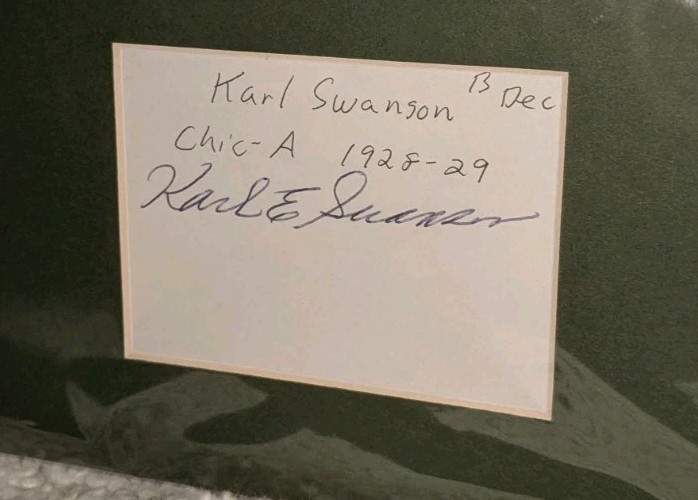 Karl Swanson B Dec
Chic-A 1928-29
Karl E Swanson